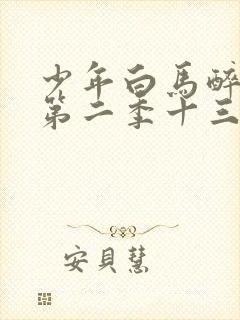 少年白馬醉
第二季十三
安貝慧